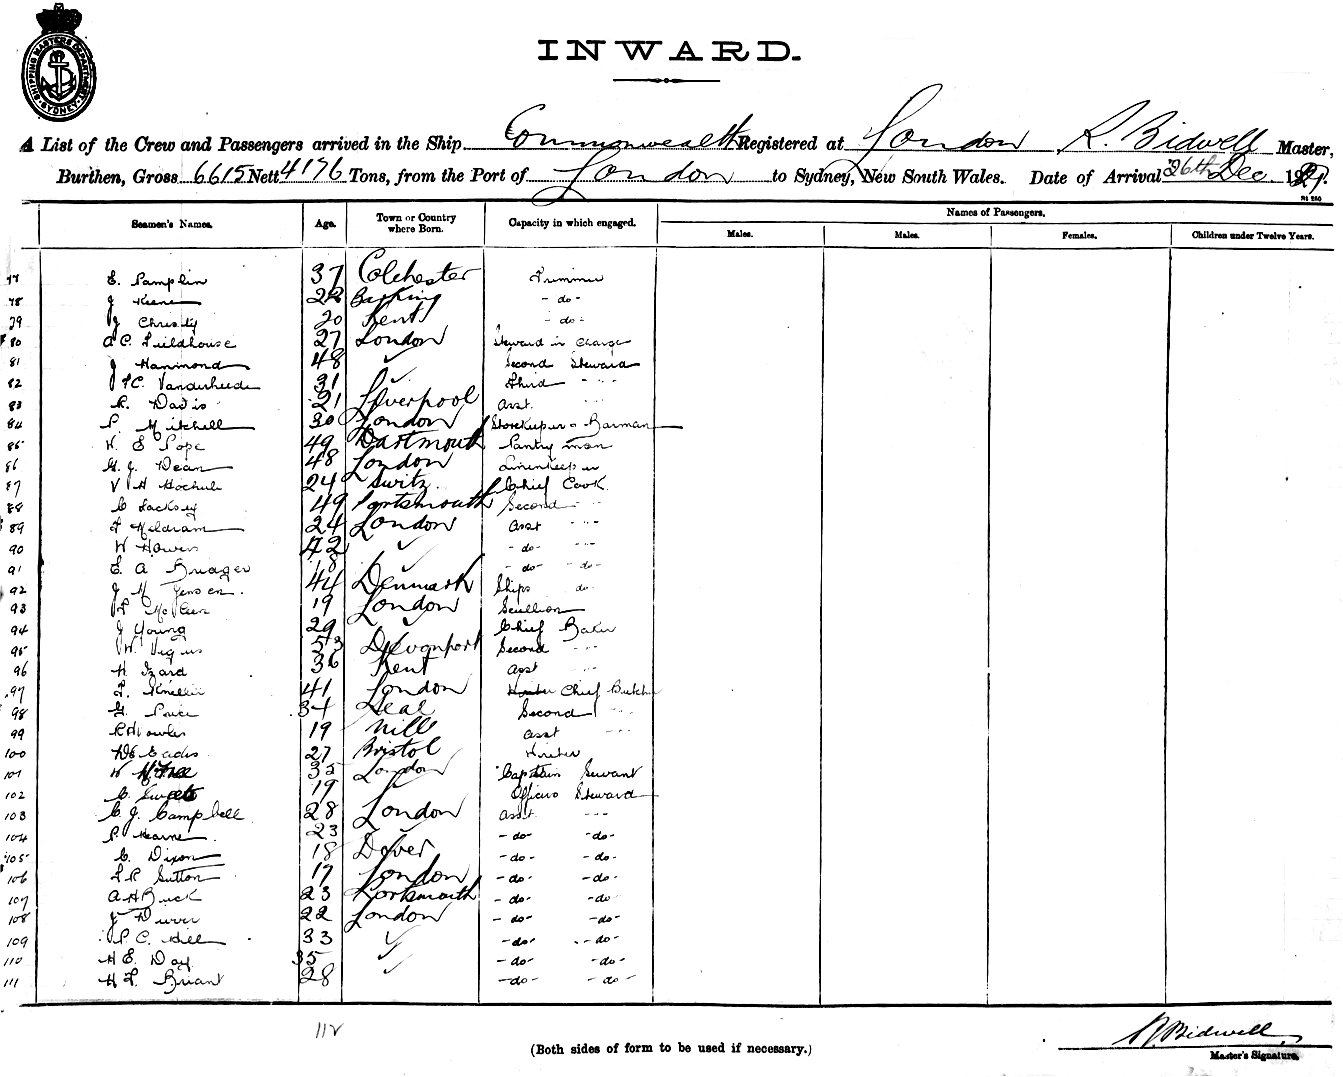 SHIPPING MASTERS DEPARTMENT SYDNEY
INWARD.
A List of the Crew and Passengers arrived in the Ship Commonwealth Registered at London R. Bidwell Master,
Burthen, Gross 6615 Nett 4176 Tons, from the Port of London to Sydney, New South Wales. Date of Arrival 26th Dec.
Seamen's Names. Age. Town or Country where Born. Capacity in which engaged. Names of Passengers.
Males. Males. Females. Children under Twelve Years.
E. Pamplin 37 Colchester Trimmer
78 J Keene 22 Barking - do -
79 J Christy 20 Kent - do -
80 27 London Steward in Charge
81 J Hammond 48 ✓ Second Steward
82 31 ✓ Third - - -
83 R. Davis 21 Liverpool Asst.
84 P. Mitchell 30 London Storekeeper & Barman
85 W. E Pope 49 Dartmouth Pantry man
86 G. J. Dean 48 London Linenkeeper
87 V H 24 Switz. Chief Cook
88 C 49 Portsmouth Second - - -
89 F Meldram 24 London Asst - - -
90 W 42 ✓ - do - - - -
91 E. A 18 ✓ - do - - do -
92 J M Jensen. 44 Denmark Ships do -
93 19 London Scullion
94 J Young 29 ✓ Chief Baker
95 W. 53 Devonport Second - - -
96 H Izard 36 Kent Asst - - -
97 F. 41 London Chief Butch
98 G. Price 34 Deal Second - - -
99 19 Asst - - -
100 Eades 27 Bristol
101 W 35 London Captain Servant
102 C. 19 Officers Steward
103 C. J. Campbell 28 London Asst - - -
104 P. Hearne 23 ✓ - do - - do -
105 C. Dixon 18 Dover - do - - do -
106 F. R Sutton 17 London - do - - do -
107 A H Buck 23 Portsmouth - do - - do -
108 J 22 London - do - - do -
109 P. C. Hill 33 ✓ - do - - do -
110 H E. Day 35 ✓ - do - - do -
111 H F. Briant 28 ✓ - do - - do -
112
R. Bidwell
(Both sides of form to be used if necessary.)
Master's Signature.